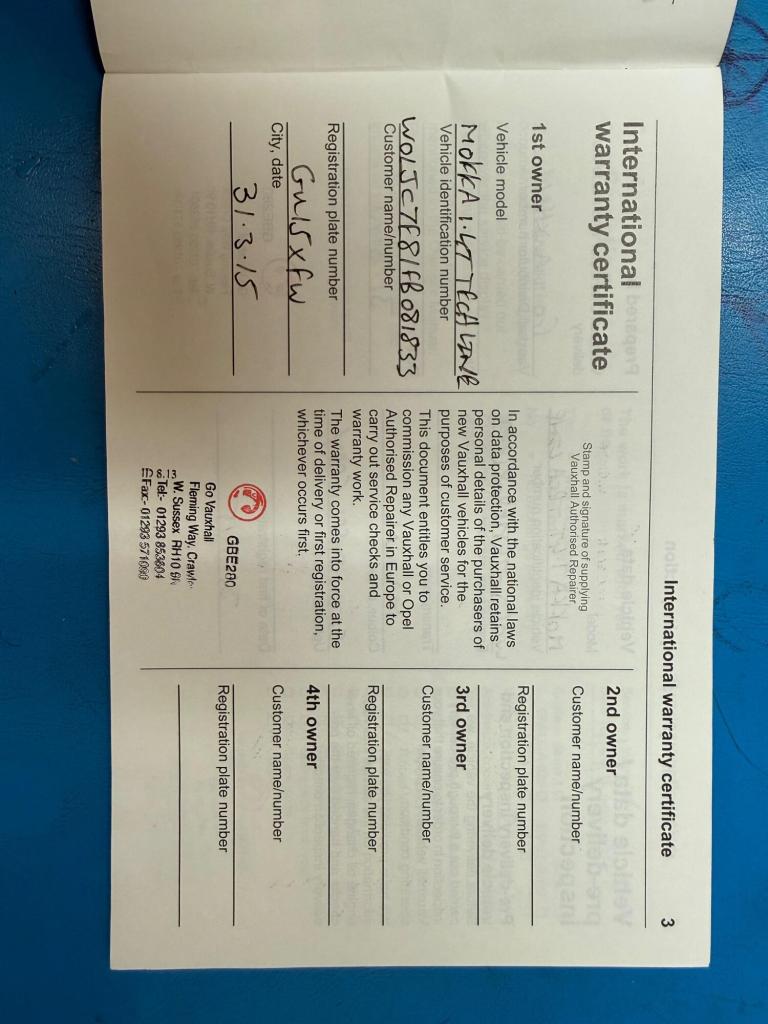 International warranty certificate 3
International
warranty certificate
1st owner
Vehicle model
MOKKA 1.4T TECH LINE
Vehicle identification number
W0LJC7E81FB081833
Customer name/number
Registration plate number
GU15XFW
City, date
31.3.15
Stamp and signature of supplying
Vauxhall Authorised Repairer
In accordance with the national laws
on data protection, Vauxhall retains
personal details of the purchasers of
new Vauxhall vehicles for the
purposes of customer service.
This document entitles you to
commission any Vauxhall or Opel
Authorised Repairer in Europe to
carry out service checks and
warranty work.
The warranty comes into force at the
time of delivery or first registration,
whichever occurs first.
GBE280
Go Vauxhall
Fleming Way, Crawle
W. Sussex RH10
Tel:- 01293 853604
Fax:- 01293
2nd owner
Customer name/number
Registration plate number
3rd owner
Customer name/number
Registration plate number
4th owner
Customer name/number
Registration plate number